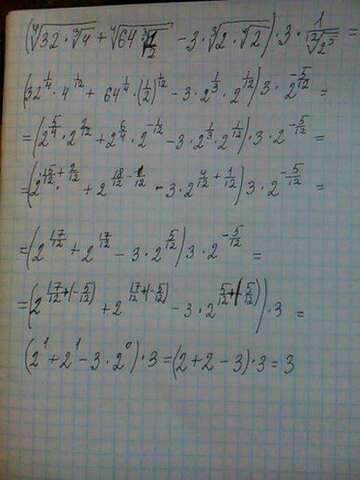 (⁴√(32·³√4) + ⁴√(64·³√(1/2)) - 3·³√(2·⁴√2))·3·1/¹²√(2⁵) =
(32^(1/4)·4^(1/12) + 64^(1/4)·(1/2)^(1/12) - 3·2^(1/3)·2^(1/12))3·2^(-5/12) =
=(2^(5/4)·2^(2/12) + 2^(6/4)·2^(-1/12) - 3·2^(1/3)·2^(1/12))·3·2^(-5/12) =
=(2^(15/12+2/12) + 2^(18/12-1/12) - 3·2^(4/12+1/12))3·2^(-5/12) =
=(2^(17/12) + 2^(17/12) - 3·2^(5/12))3·2^(-5/12) =
=(2^(17/12+(-5/12)) + 2^(17/12+(-5/12)) - 3·2^(5/12+(-5/12)))·3 =
(2¹+2¹-3·2⁰)·3=(2+2-3)·3=3